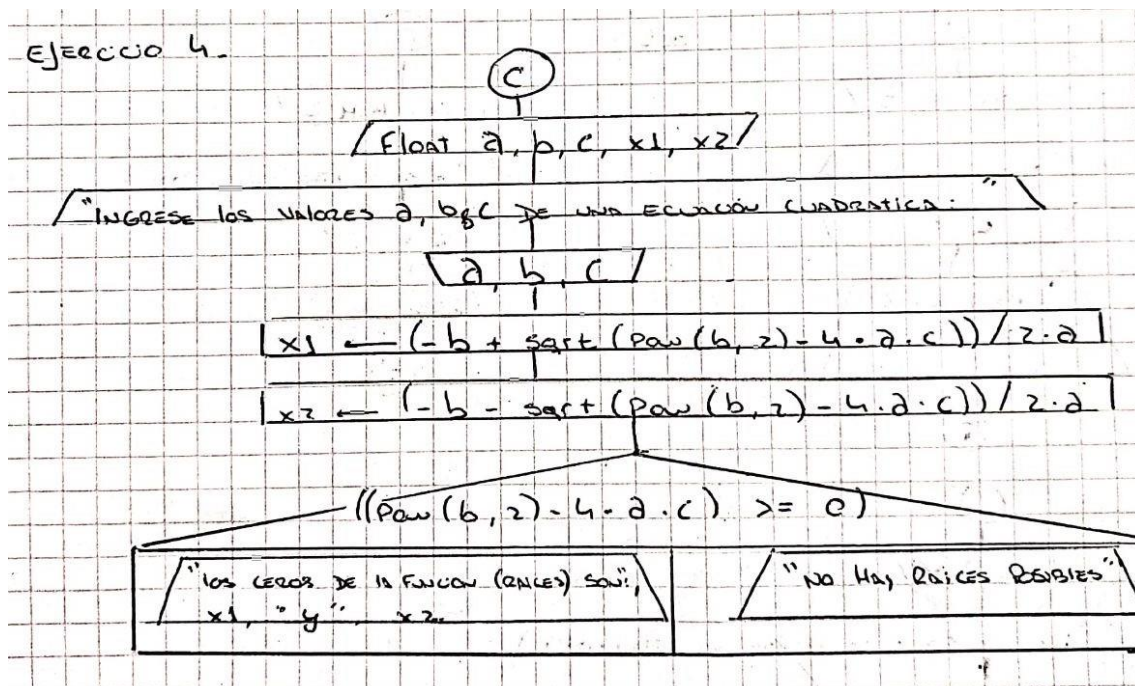 EJERCICIO 4.
C
Float a, b, c, x1, x2
"INGRESE los VALORES a, b y C DE UNA ECUACIÓN CUADRATICA: "
a, b, c
x1 ← (-b + sqrt (pow (b, 2) - 4 · a · c)) / 2 · a
x2 ← (-b - sqrt (pow (b, 2) - 4 · a · c)) / 2 · a
((pow (b, 2) - 4 · a · c) >= 0)
"los CEROS DE lA FUNCION (RAICES) SON:",
x1, " y ", x2.
"NO HAy RAICES POSIBlES"